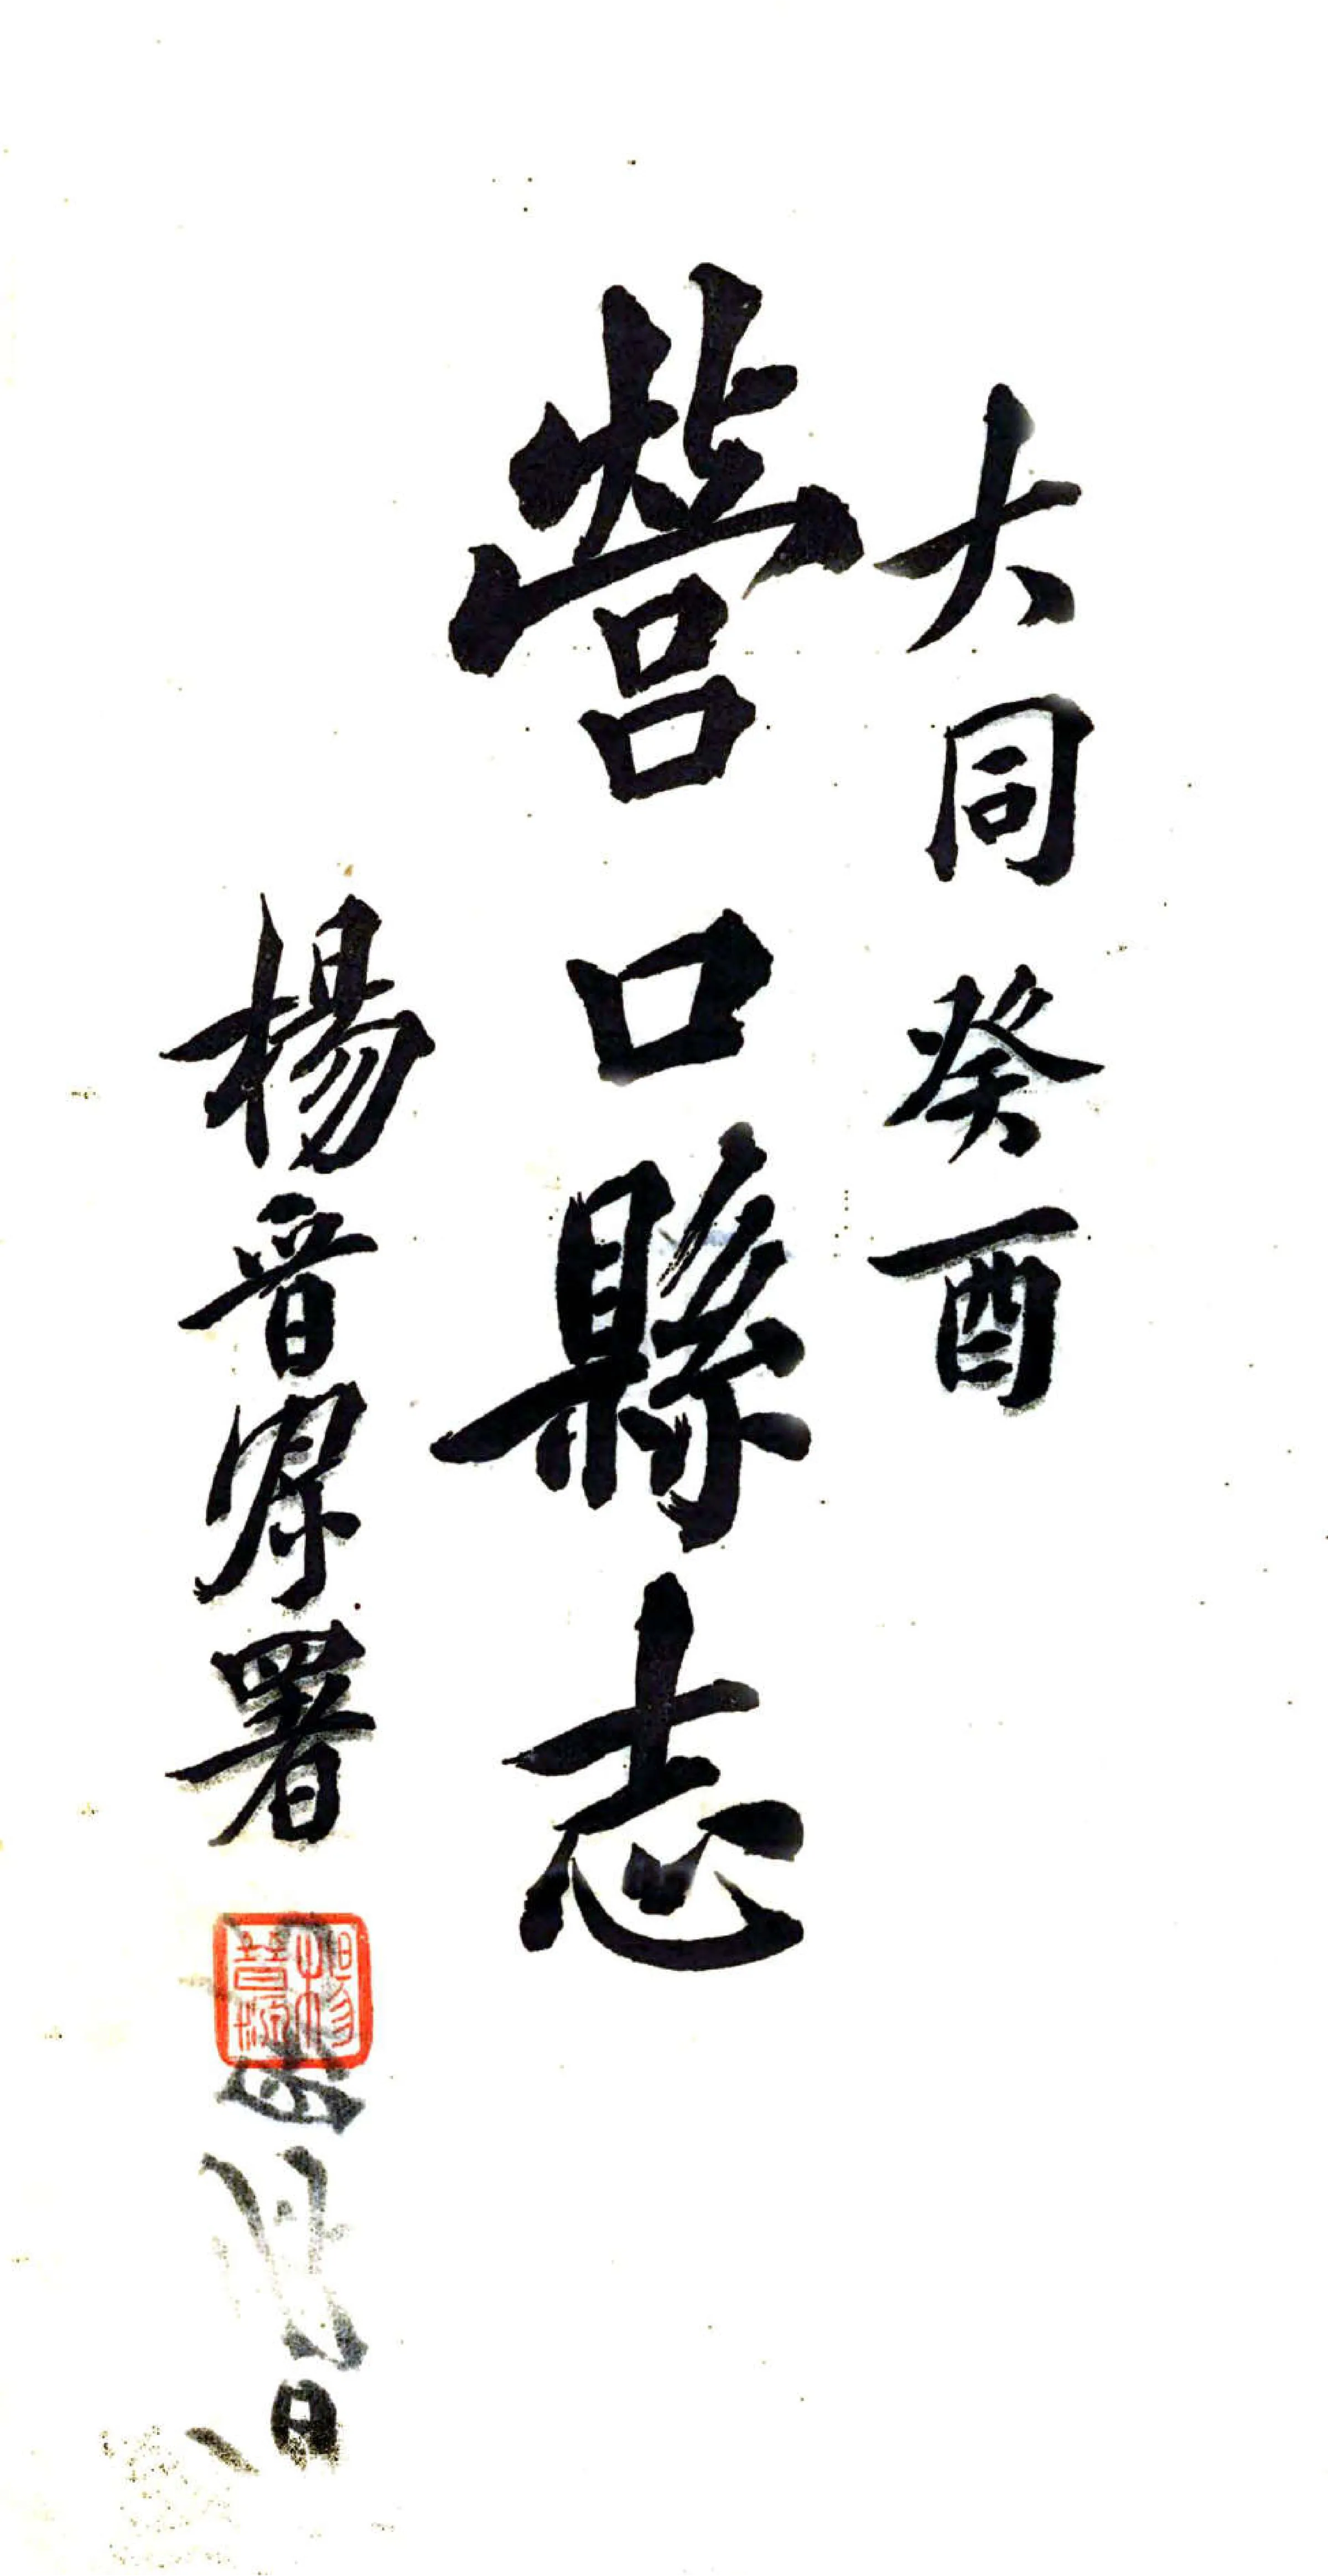 大同癸酉
營口縣志
楊晋源署
楊晉源